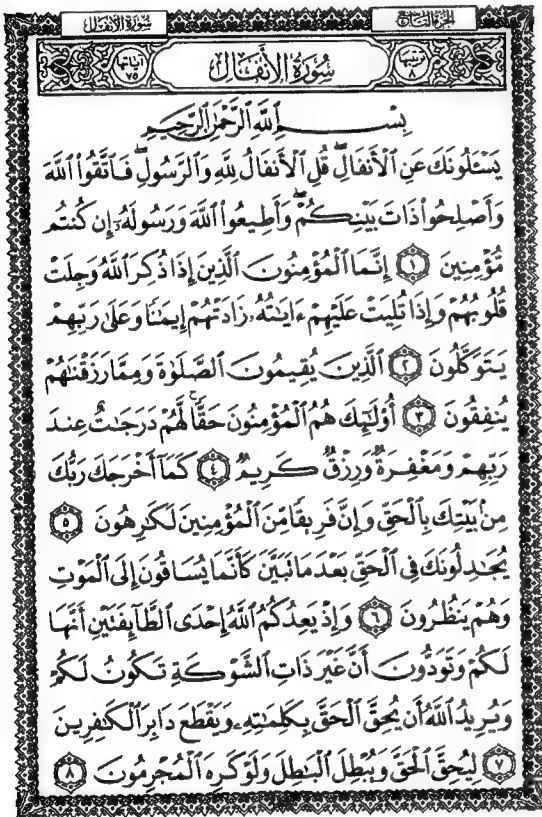 سُورَةُ الأَنْفَالِ
الجُزْءُ التَّاسِعُ
آيَاتُهَا ٧٥
سُورَةُ الأَنْفَالِ
تَرْتِيبُهَا ٨
بِسْمِ ٱللَّهِ ٱلرَّحْمَٰنِ ٱلرَّحِيمِ
يَسْـَٔلُونَكَ عَنِ ٱلْأَنفَالِ ۖ قُلِ ٱلْأَنفَالُ لِلَّهِ وَٱلرَّسُولِ ۖ فَٱتَّقُوا۟ ٱللَّهَ
وَأَصْلِحُوا۟ ذَاتَ بَيْنِكُمْ ۖ وَأَطِيعُوا۟ ٱللَّهَ وَرَسُولَهُۥٓ إِن كُنتُم
مُّؤْمِنِينَ ۝١ إِنَّمَا ٱلْمُؤْمِنُونَ ٱلَّذِينَ إِذَا ذُكِرَ ٱللَّهُ وَجِلَتْ
قُلُوبُهُمْ وَإِذَا تُلِيَتْ عَلَيْهِمْ ءَايَٰتُهُۥ زَادَتْهُمْ إِيمَٰنًا وَعَلَىٰ رَبِّهِمْ
يَتَوَكَّلُونَ ۝٢ ٱلَّذِينَ يُقِيمُونَ ٱلصَّلَوٰةَ وَمِمَّا رَزَقْنَٰهُمْ
يُنفِقُونَ ۝٣ أُو۟لَٰٓئِكَ هُمُ ٱلْمُؤْمِنُونَ حَقًّا ۚ لَّهُمْ دَرَجَٰتٌ عِندَ
رَبِّهِمْ وَمَغْفِرَةٌ وَرِزْقٌ كَرِيمٌ ۝٤ كَمَآ أَخْرَجَكَ رَبُّكَ
مِنۢ بَيْتِكَ بِٱلْحَقِّ وَإِنَّ فَرِيقًا مِّنَ ٱلْمُؤْمِنِينَ لَكَٰرِهُونَ ۝٥
يُجَٰدِلُونَكَ فِى ٱلْحَقِّ بَعْدَ مَا تَبَيَّنَ كَأَنَّمَا يُسَاقُونَ إِلَى ٱلْمَوْتِ
وَهُمْ يَنظُرُونَ ۝٦ وَإِذْ يَعِدُكُمُ ٱللَّهُ إِحْدَى ٱلطَّآئِفَتَيْنِ أَنَّهَا
لَكُمْ وَتَوَدُّونَ أَنَّ غَيْرَ ذَاتِ ٱلشَّوْكَةِ تَكُونُ لَكُمْ
وَيُرِيدُ ٱللَّهُ أَن يُحِقَّ ٱلْحَقَّ بِكَلِمَٰتِهِۦ وَيَقْطَعَ دَابِرَ ٱلْكَٰفِرِينَ
۝٧ لِيُحِقَّ ٱلْحَقَّ وَيُبْطِلَ ٱلْبَٰطِلَ وَلَوْ كَرِهَ ٱلْمُجْرِمُونَ ۝٨